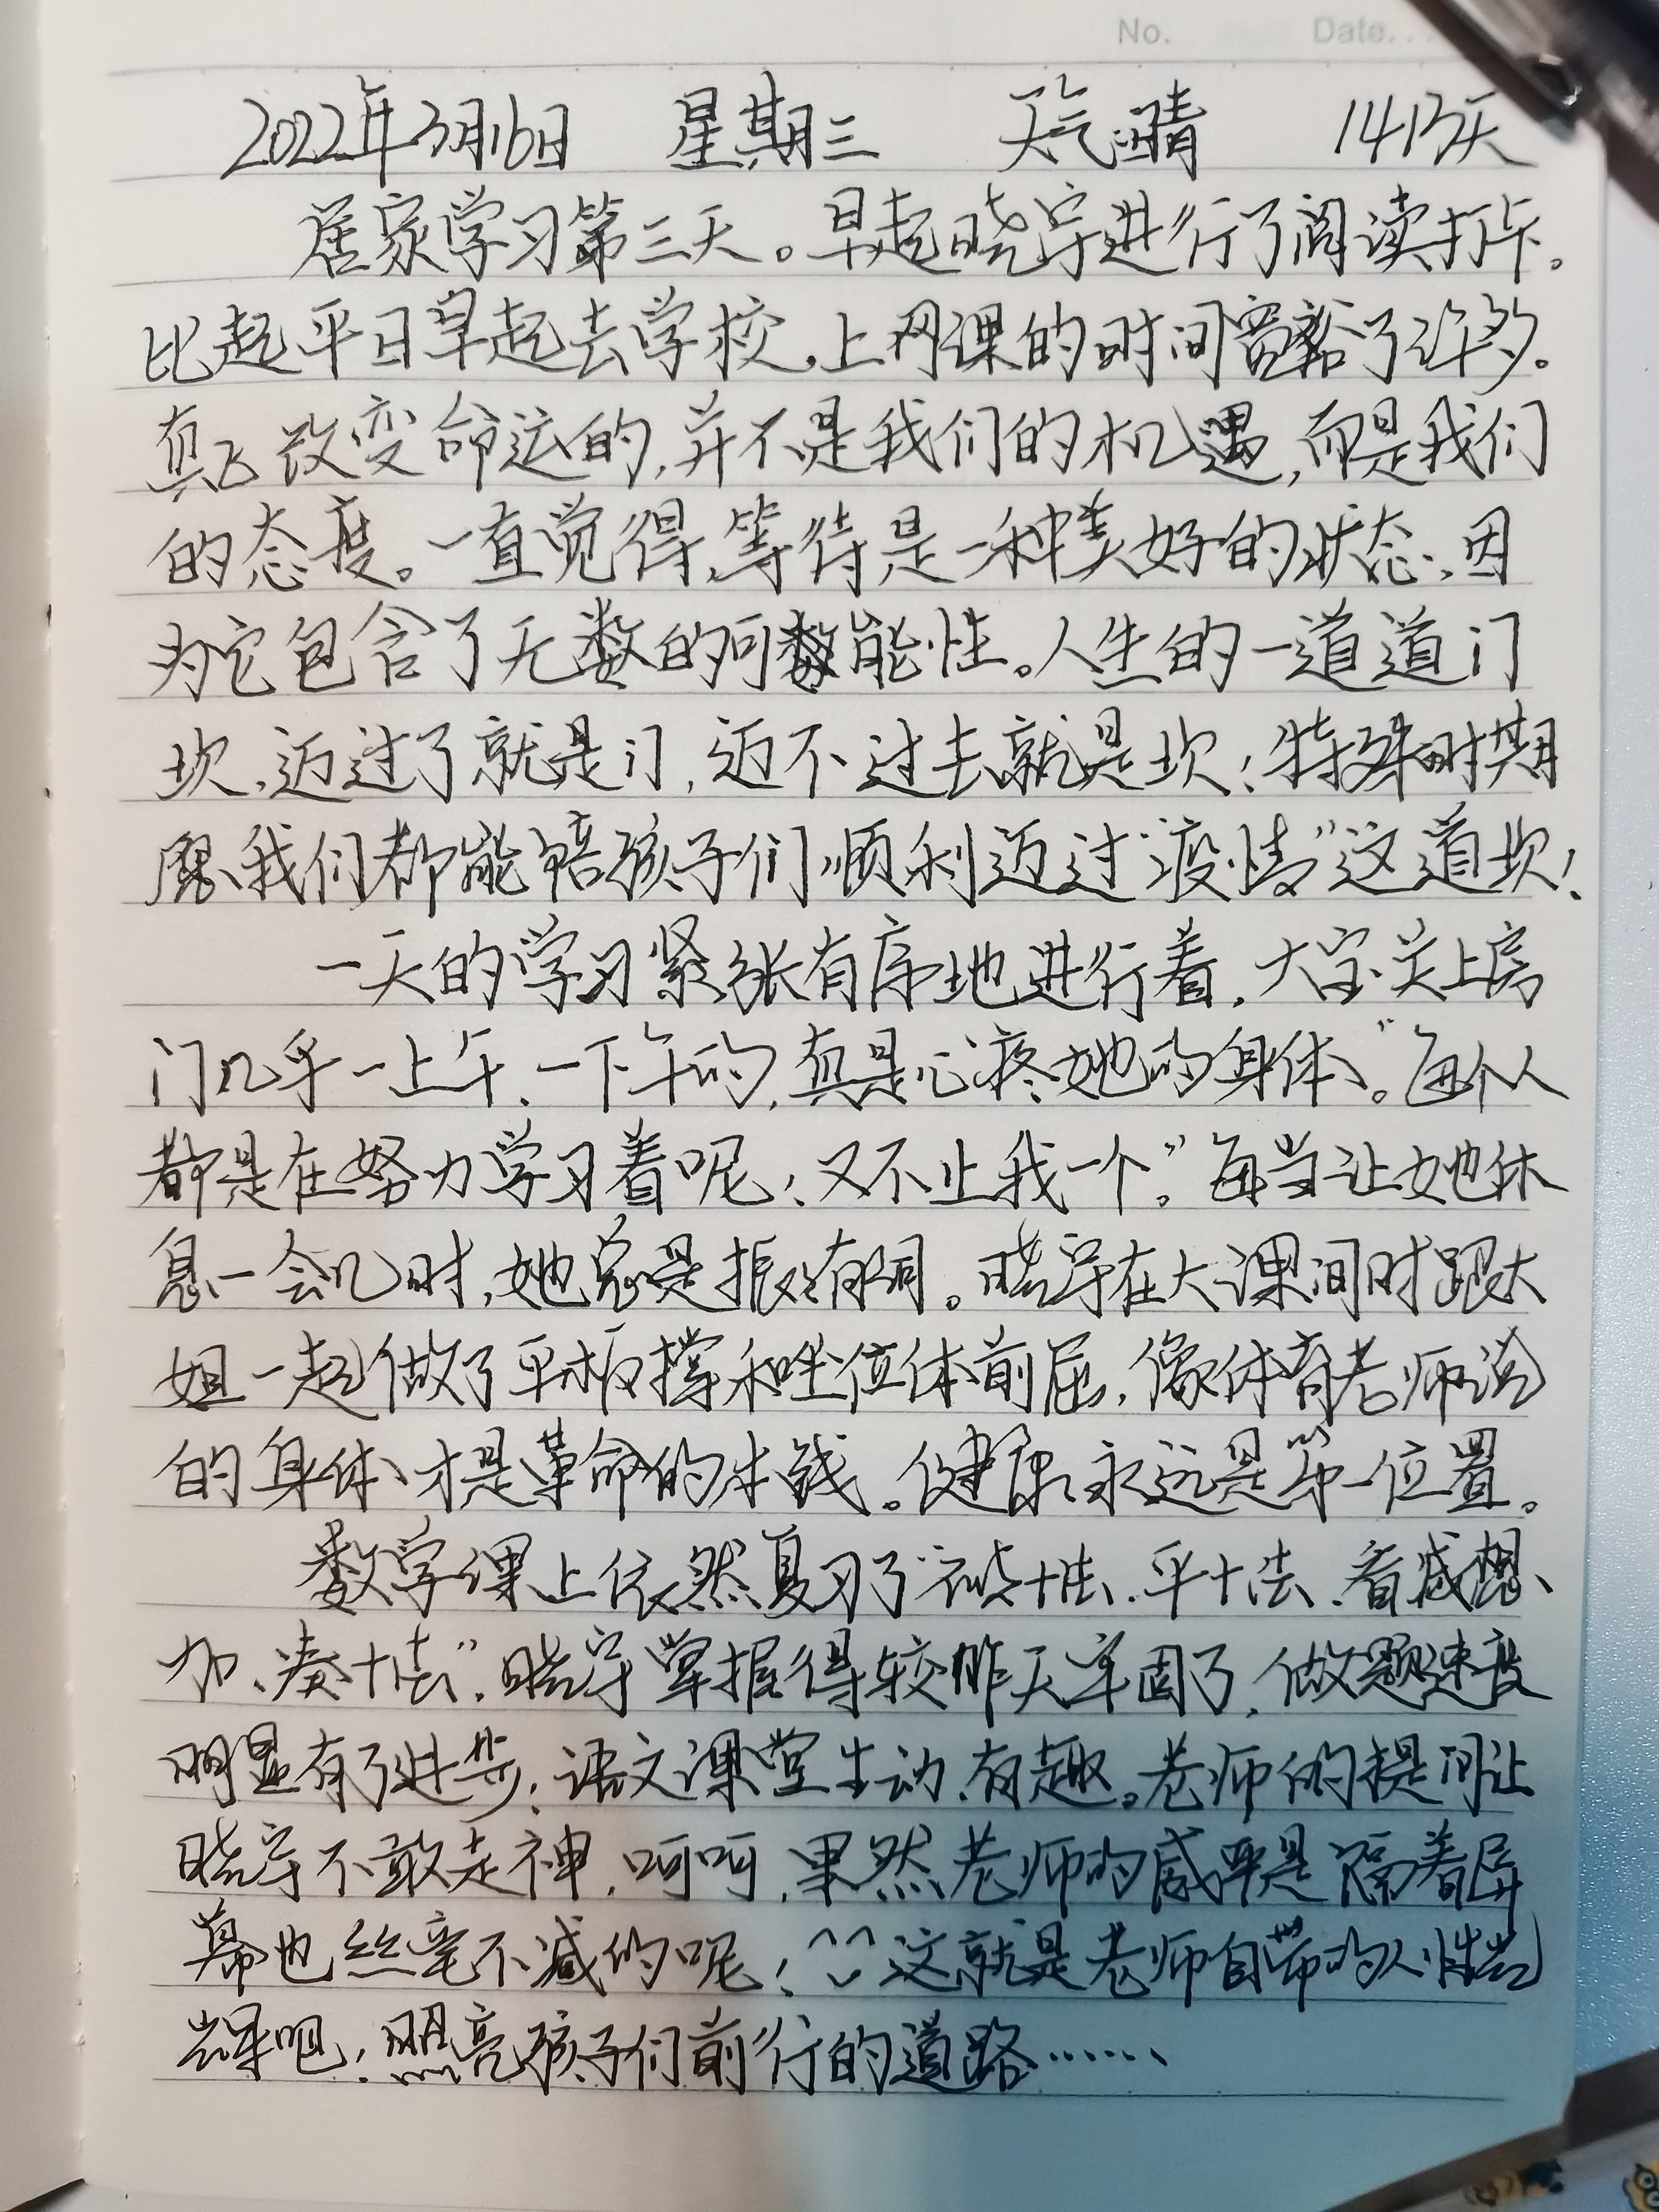 No. Date.
2022年3月16日 星期三 天气:晴 1413天
居家学习第三天。早起晓宇进行了阅读打卡。
比起平日早起去学校,上网课的时间宽裕了许多。
真正改变命运的,并不是我们的机遇,而是我们
的态度。一直觉得,等待是一种美好的状态,因
为它包含了无数的可能性。人生的一道道门
坎,迈过了就是门,迈不过去就是坎!特殊时期
愿我们都能陪孩子们顺利迈过“疫情”这道坎!
一天的学习紧张有序地进行着,大宝关上房
门几乎一上午、一下午的,真是心疼她的身体。“每个人
都是在努力学习着呢!又不止我一个。”每当让她休
息一会儿时,她总是振振有词。晓宇在大课间时跟大
姐一起做了平板撑和坐位体前屈,像体育老师说
的身体才是革命的本钱。健康永远是第一位置。
数学课上依然复习了“破十法、平十法、看减想
加、凑十法”,晓宇掌握得较昨天牢固了,做题速度
明显有了进步!语文课堂生动、有趣。老师的提问让
晓宇不敢走神,呵呵,果然老师的威严是隔着屏
幕也丝毫不减的呢!^^这就是老师自带的人性光
辉吧!照亮孩子们前行的道路……